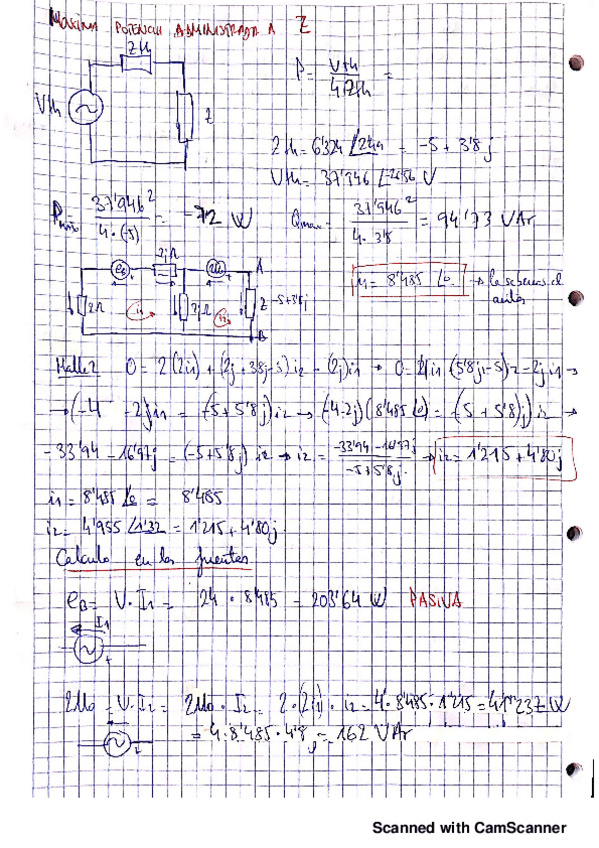 MAXIMA POTENCIA ADMINISTRADA A Z
Zth
Vth
Z
P = Vth / 4 Zth =
Zth = 6'324 ∠2'49 = -5 + 3'8 j
Vth = 37'946 ∠-26'56 V
Pmáx = 37'946² / 4·(-5) = -72 W
Qmax = 37'946² / 4·3'8 = 94'73 VAr
2jΩ
A
2Ω
i1
2jΩ
i2
Z -5+3'8j
B
i1 = 8'485 ∠0 → la sabemos de antes
Malla 2 0 = 2(2i1) + (2j+3'8j-5) i2 - (2j)i1 → 0 = 4i1 + (5'8j-5)i2 - 2j i1 →
→ (-4 - 2j)i1 = (-5+5'8j) i2 → (-4+2j)(8'485 ∠0) = (-5 + 5'8j) i2 →
-33'94 - 16'97j = (-5+5'8j) i2 → i2 = -33'94 - 16'97j / -5+5'8j → i2 = 1'215 + 4'80j
i1 = 8'485 ∠0 = 8'485
i2 = 4'955 ∠1'32 = 1'215 + 4'80j
Calculo en las fuentes
eB = V · I1 = 24 · 8'485 = 203'64 W PASIVA
I1
+
2U0 = V·I2 = 2U0 · I2 = 2·(2i1) · i2 = 4·8'485·1'215 = 41'237 W
= 4·8'485·4'8j = 162 VAr
Scanned with CamScanner